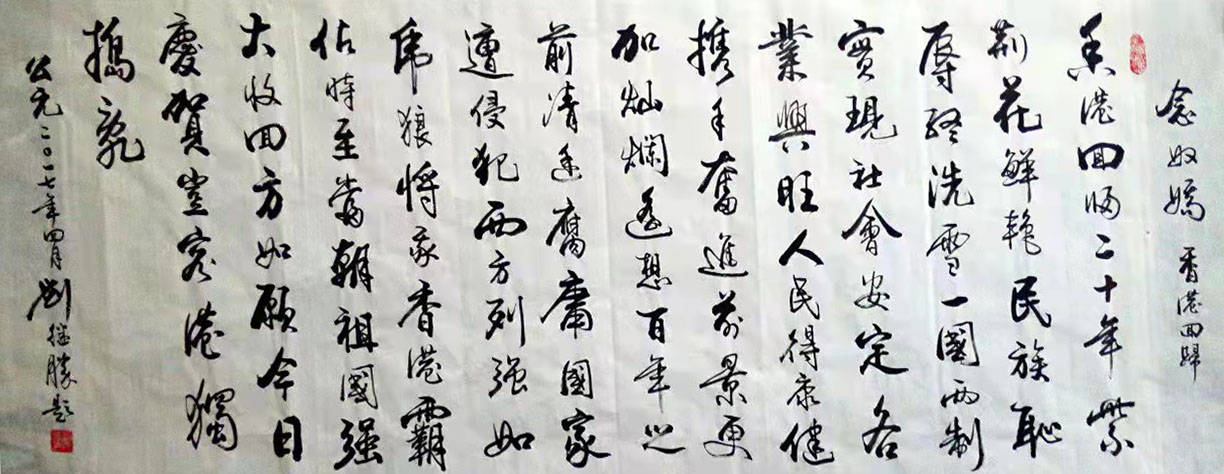 念奴嬌 香港回歸
香港回歸二十年紫
荊花鮮艷民族恥
辱終洗雪一國兩制
實現社會安定各
業興旺人民得康健
携手奮進前景更
加灿爛遙想百年之
前清廷腐庸國家
遭侵犯西方列强如
虎狼將我香港霸
佔時至當朝祖國强
大收回方如願今日
慶賀豈容港獨
搗亂
公元二〇一七年四月劉繼勝題